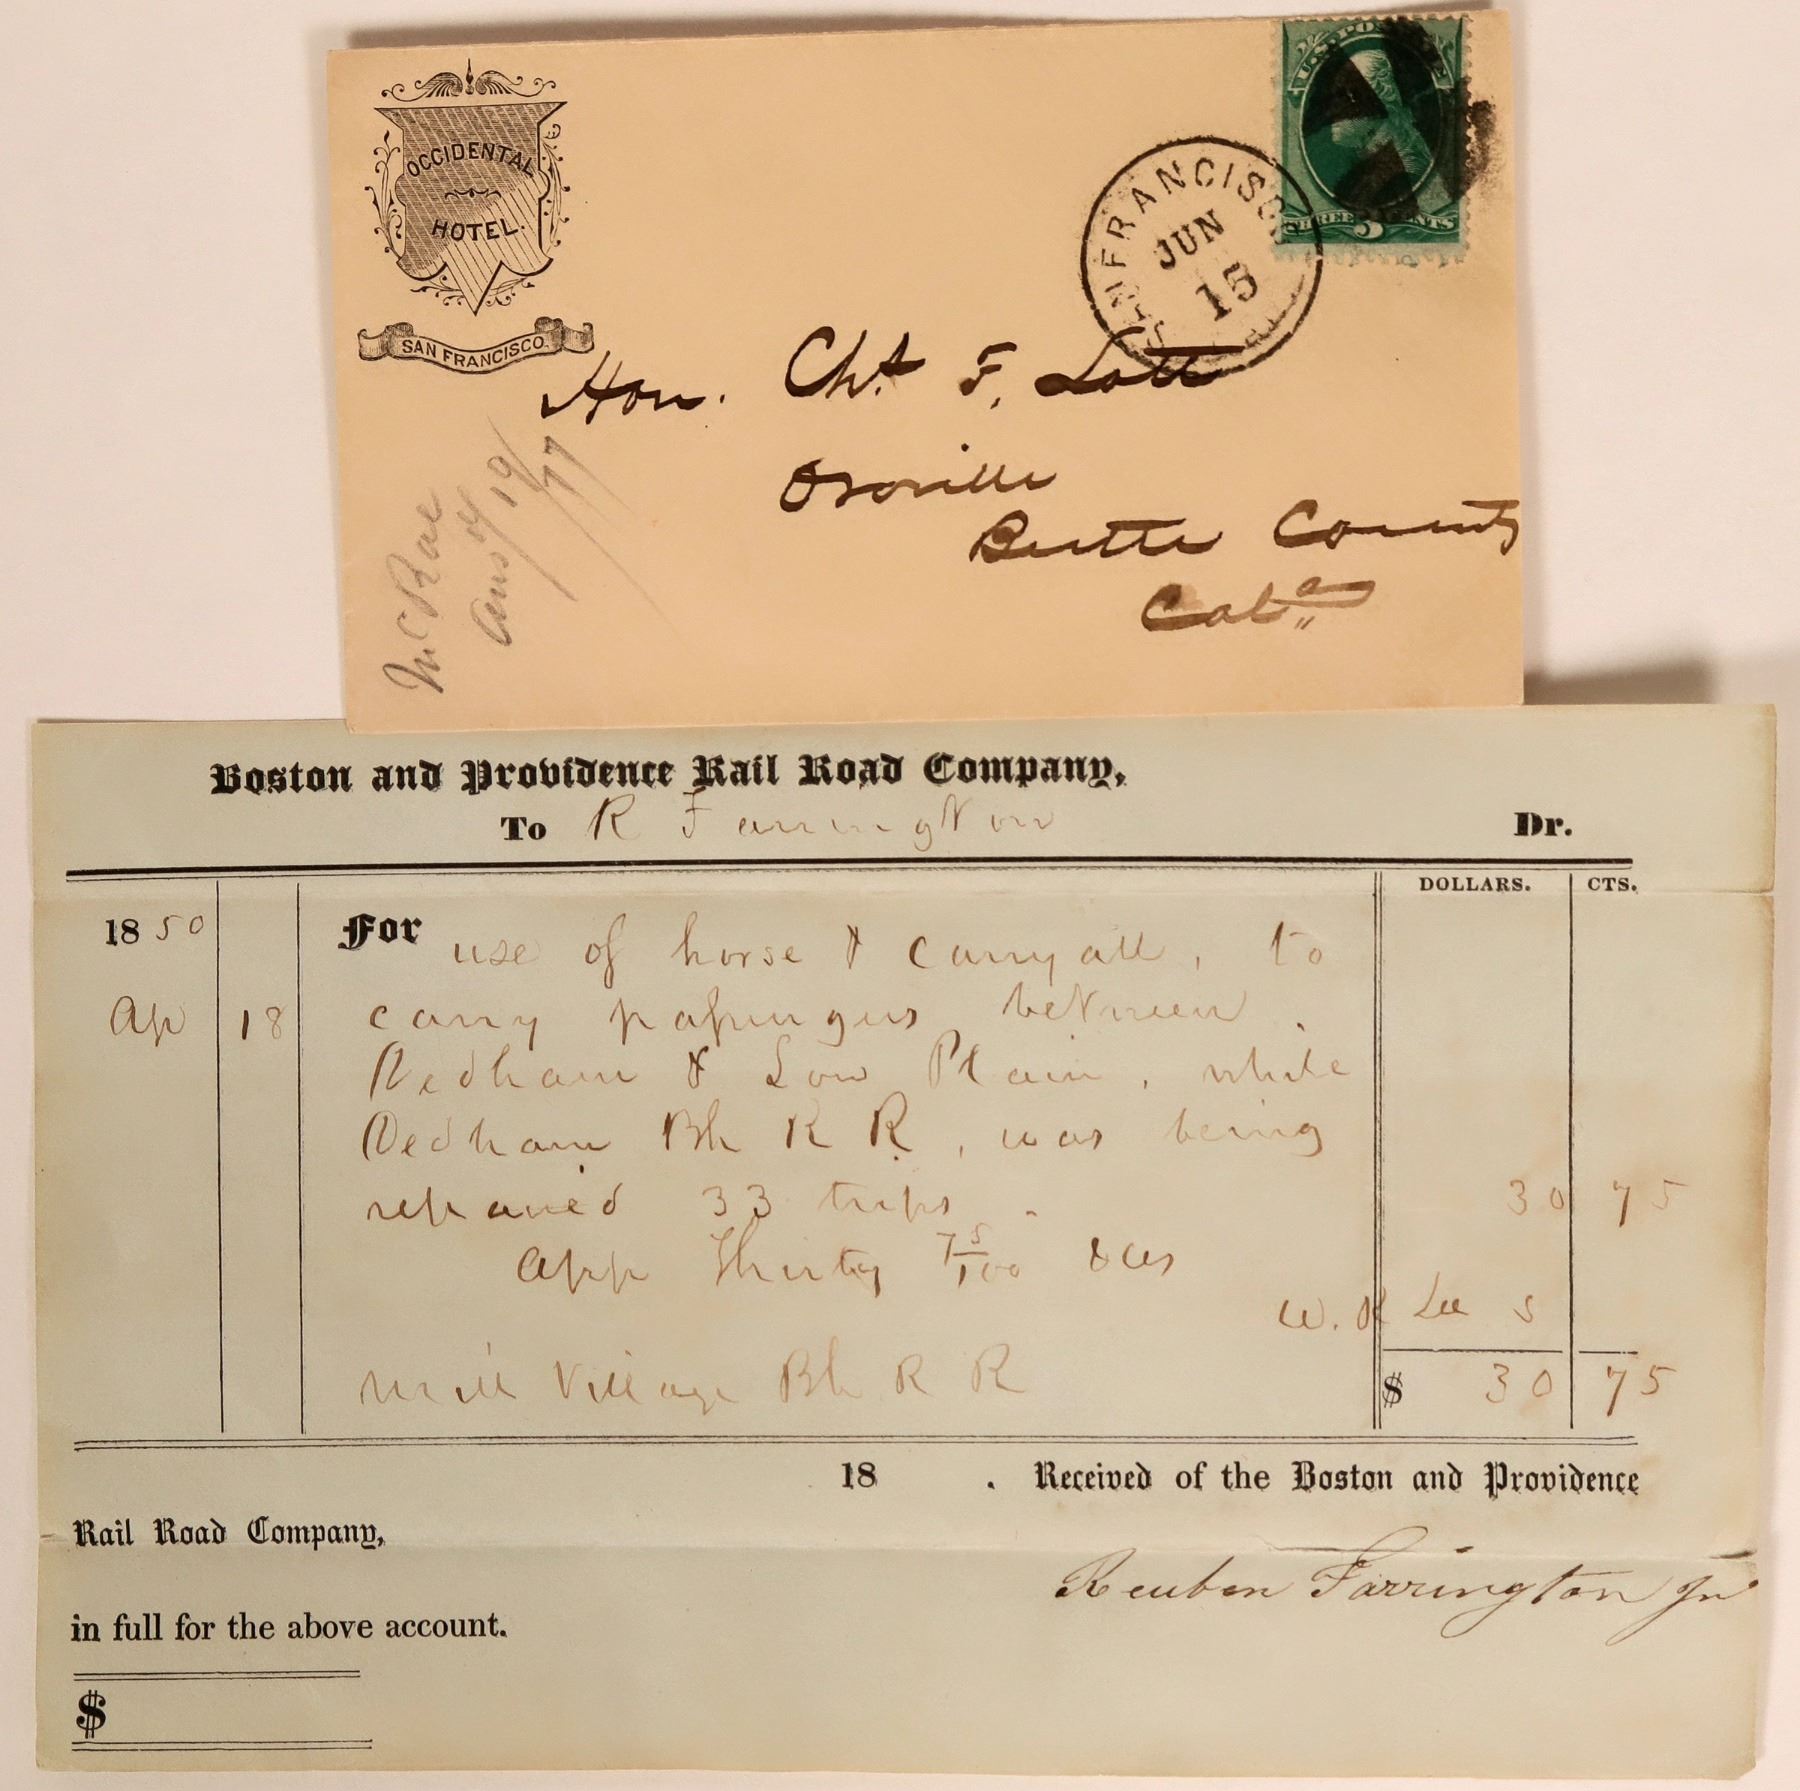 OCCIDENTAL
HOTEL.
SAN FRANCISCO.
U.S. POSTAGE
THREE 3 CENTS
SAN FRANCISCO
JUN
15
Hon. Chs F. Lott
Oroville
Butte County
Cala
McRae
Ans 19/77
Boston and Providence Rail Road Company,
To R Farrington Dr.
DOLLARS. CTS.
1850 For use of horse & carryall, to
Ap 18 carry passengers between
Dedham & Low Plain, while
Dedham Bh R R, was being
repaired 33 trips. 30 75
App Thirty 75/100 dols
W. R Lee S
Mill Village Bh R R $ 30 75
18 . Received of the Boston and Providence
Rail Road Company,
Reuben Farrington Jr
in full for the above account.
$